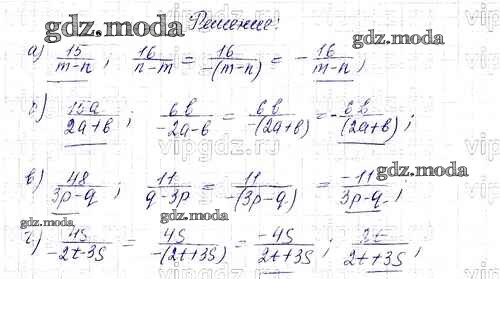 gdz.moda Решение:
gdz.moda
а) 15/(m-n) ; 16/(n-m) = 16/(-(m-n)) = - 16/(m-n) ;
vipgdz.ru
б) 15a/(2a+b) ; 6b/(-2a-b) = 6b/(-(2a+b)) = - 6b/(2a+b) ;
vipgdz.ru
gdz.moda
в) 48/(3p-q) ; 11/(q-3p) = 11/(-(3p-q)) = -11/(3p-q) ;
gdz.moda gdz.moda
г) 4s/(-2t-3s) = 4s/(-(2t+3s)) = -4s/(2t+3s) ; /(2t+3s) ;